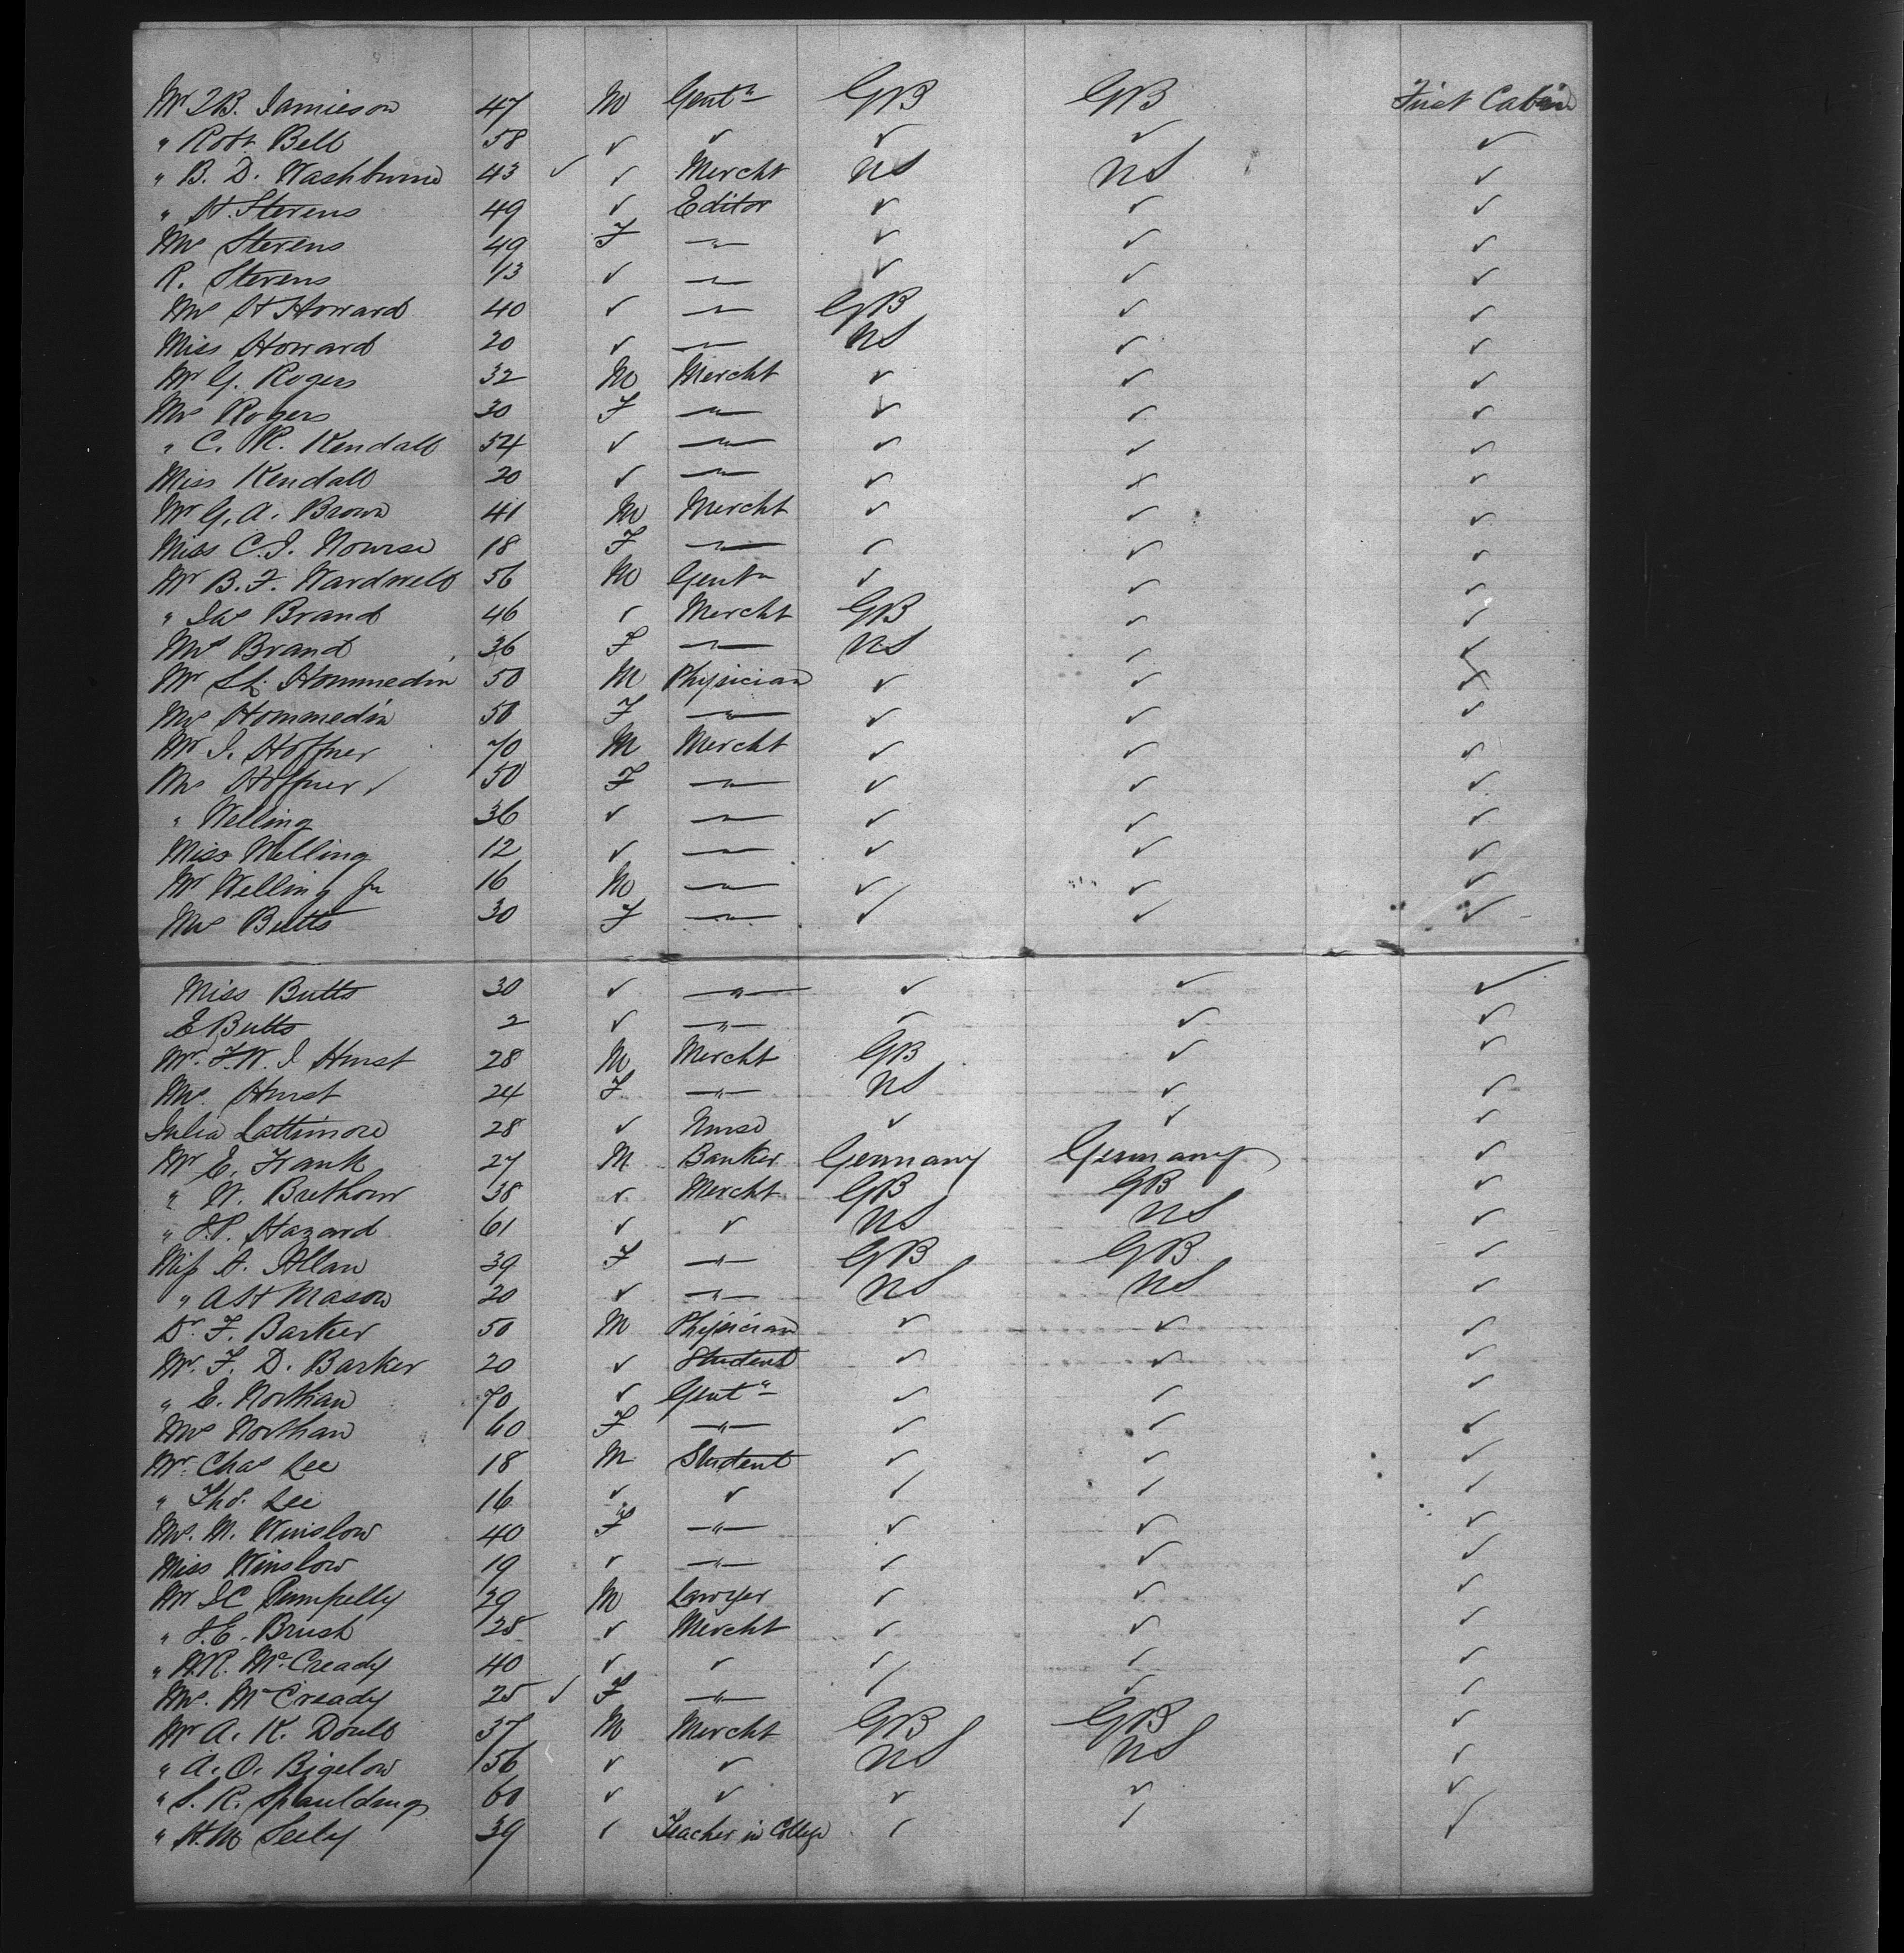 Mr T B. Jamieson 47 M Gentn GB GB First Cabin
" Robt Bell 58 ✓ ✓ ✓ ✓ ✓
" B. D. Washburne 43 ✓ ✓ Mercht US US ✓
" H. Stevens 49 ✓ Editor ✓ ✓ ✓
Mrs Stevens 49 F —"— ✓ ✓ ✓
R. Stevens 13 ✓ —"— ✓ ✓ ✓
Mrs H Howard 40 ✓ —"— GB ✓ ✓
Miss Howard 20 ✓ —"— US ✓ ✓
Mr G. Rogers 32 M Mercht ✓ ✓ ✓
Mrs Rogers 30 F —"— ✓ ✓ ✓
" C. R. Kendall 54 ✓ —"— ✓ ✓ ✓
Miss Kendall 20 ✓ —"— ✓ ✓ ✓
Mr G. A. Brown 41 M Mercht ✓ ✓ ✓
Miss C. J. Nourse 18 F —"— ✓ ✓ ✓
Mr B. F. Wardwell 56 M Gentn ✓ ✓ ✓
" Jas Brand 46 ✓ Mercht GB ✓ ✓
Mrs Brand 36 F —"— US ✓ ✓
Mr Hommedin 50 M Physician ✓ ✓ ✓
Mrs Hommedin 50 F —"— ✓ ✓ ✓
Mr J. Hoffner 70 M Mercht ✓ ✓ ✓
Mrs Hoffner ✓ 50 F —"— ✓ ✓ ✓
" Welling 36 ✓ —"— ✓ ✓ ✓
Miss Welling 12 ✓ —"— ✓ ✓ ✓
Mr Welling Jn 16 M —"— ✓ ✓ ✓
Mrs Butts 30 F —"— ✓ ✓ ✓
Miss Butts 30 ✓ —"— ✓ ✓ ✓
E Butts 2 ✓ —"— ✓ ✓ ✓
Mr. F. W. J Hurst 28 M Mercht GB ✓ ✓
Mrs. Hurst 24 F —"— US ✓ ✓
Julia Lattimore 28 ✓ Nurse ✓ ✓ ✓
Mr E. Frank 27 M Banker Germany Germany ✓
" W. Brethour 38 ✓ Mercht GB GB ✓
" J. P. Hazard 61 ✓ ✓ US US ✓
Miss A. Allan 39 F —"— GB GB ✓
" A H Mason 20 ✓ —"— US US ✓
Dr. F. Barker 50 M Physician ✓ ✓ ✓
Mr. F. D. Barker 20 ✓ Student ✓ ✓ ✓
" E. Northan 70 ✓ Gentn ✓ ✓ ✓
Mrs Northan 60 F —"— ✓ ✓ ✓
Mr. Chas Lee 18 M Student ✓ ✓ ✓
" Thos. Lee 16 ✓ ✓ ✓ ✓ ✓
Mrs. M. Winslow 40 F —"— ✓ ✓ ✓
Miss Winslow 19 ✓ —"— ✓ ✓ ✓
Mr. J C Pumpelly 29 M Lawyer ✓ ✓ ✓
" J. E. Brush 25 ✓ Mercht ✓ ✓ ✓
" N. R. McCready 40 ✓ ✓ ✓ ✓ ✓
Mrs. McCready 25 ✓ F —"— ✓ ✓ ✓
Mr A. K. Doull 37 M Mercht GB GB ✓
" A. O. Bigelow 56 ✓ ✓ US US ✓
" S. R. Spaulding 60 ✓ ✓ ✓ ✓ ✓
" H. M Seely 39 ✓ Teacher in College ✓ ✓ ✓